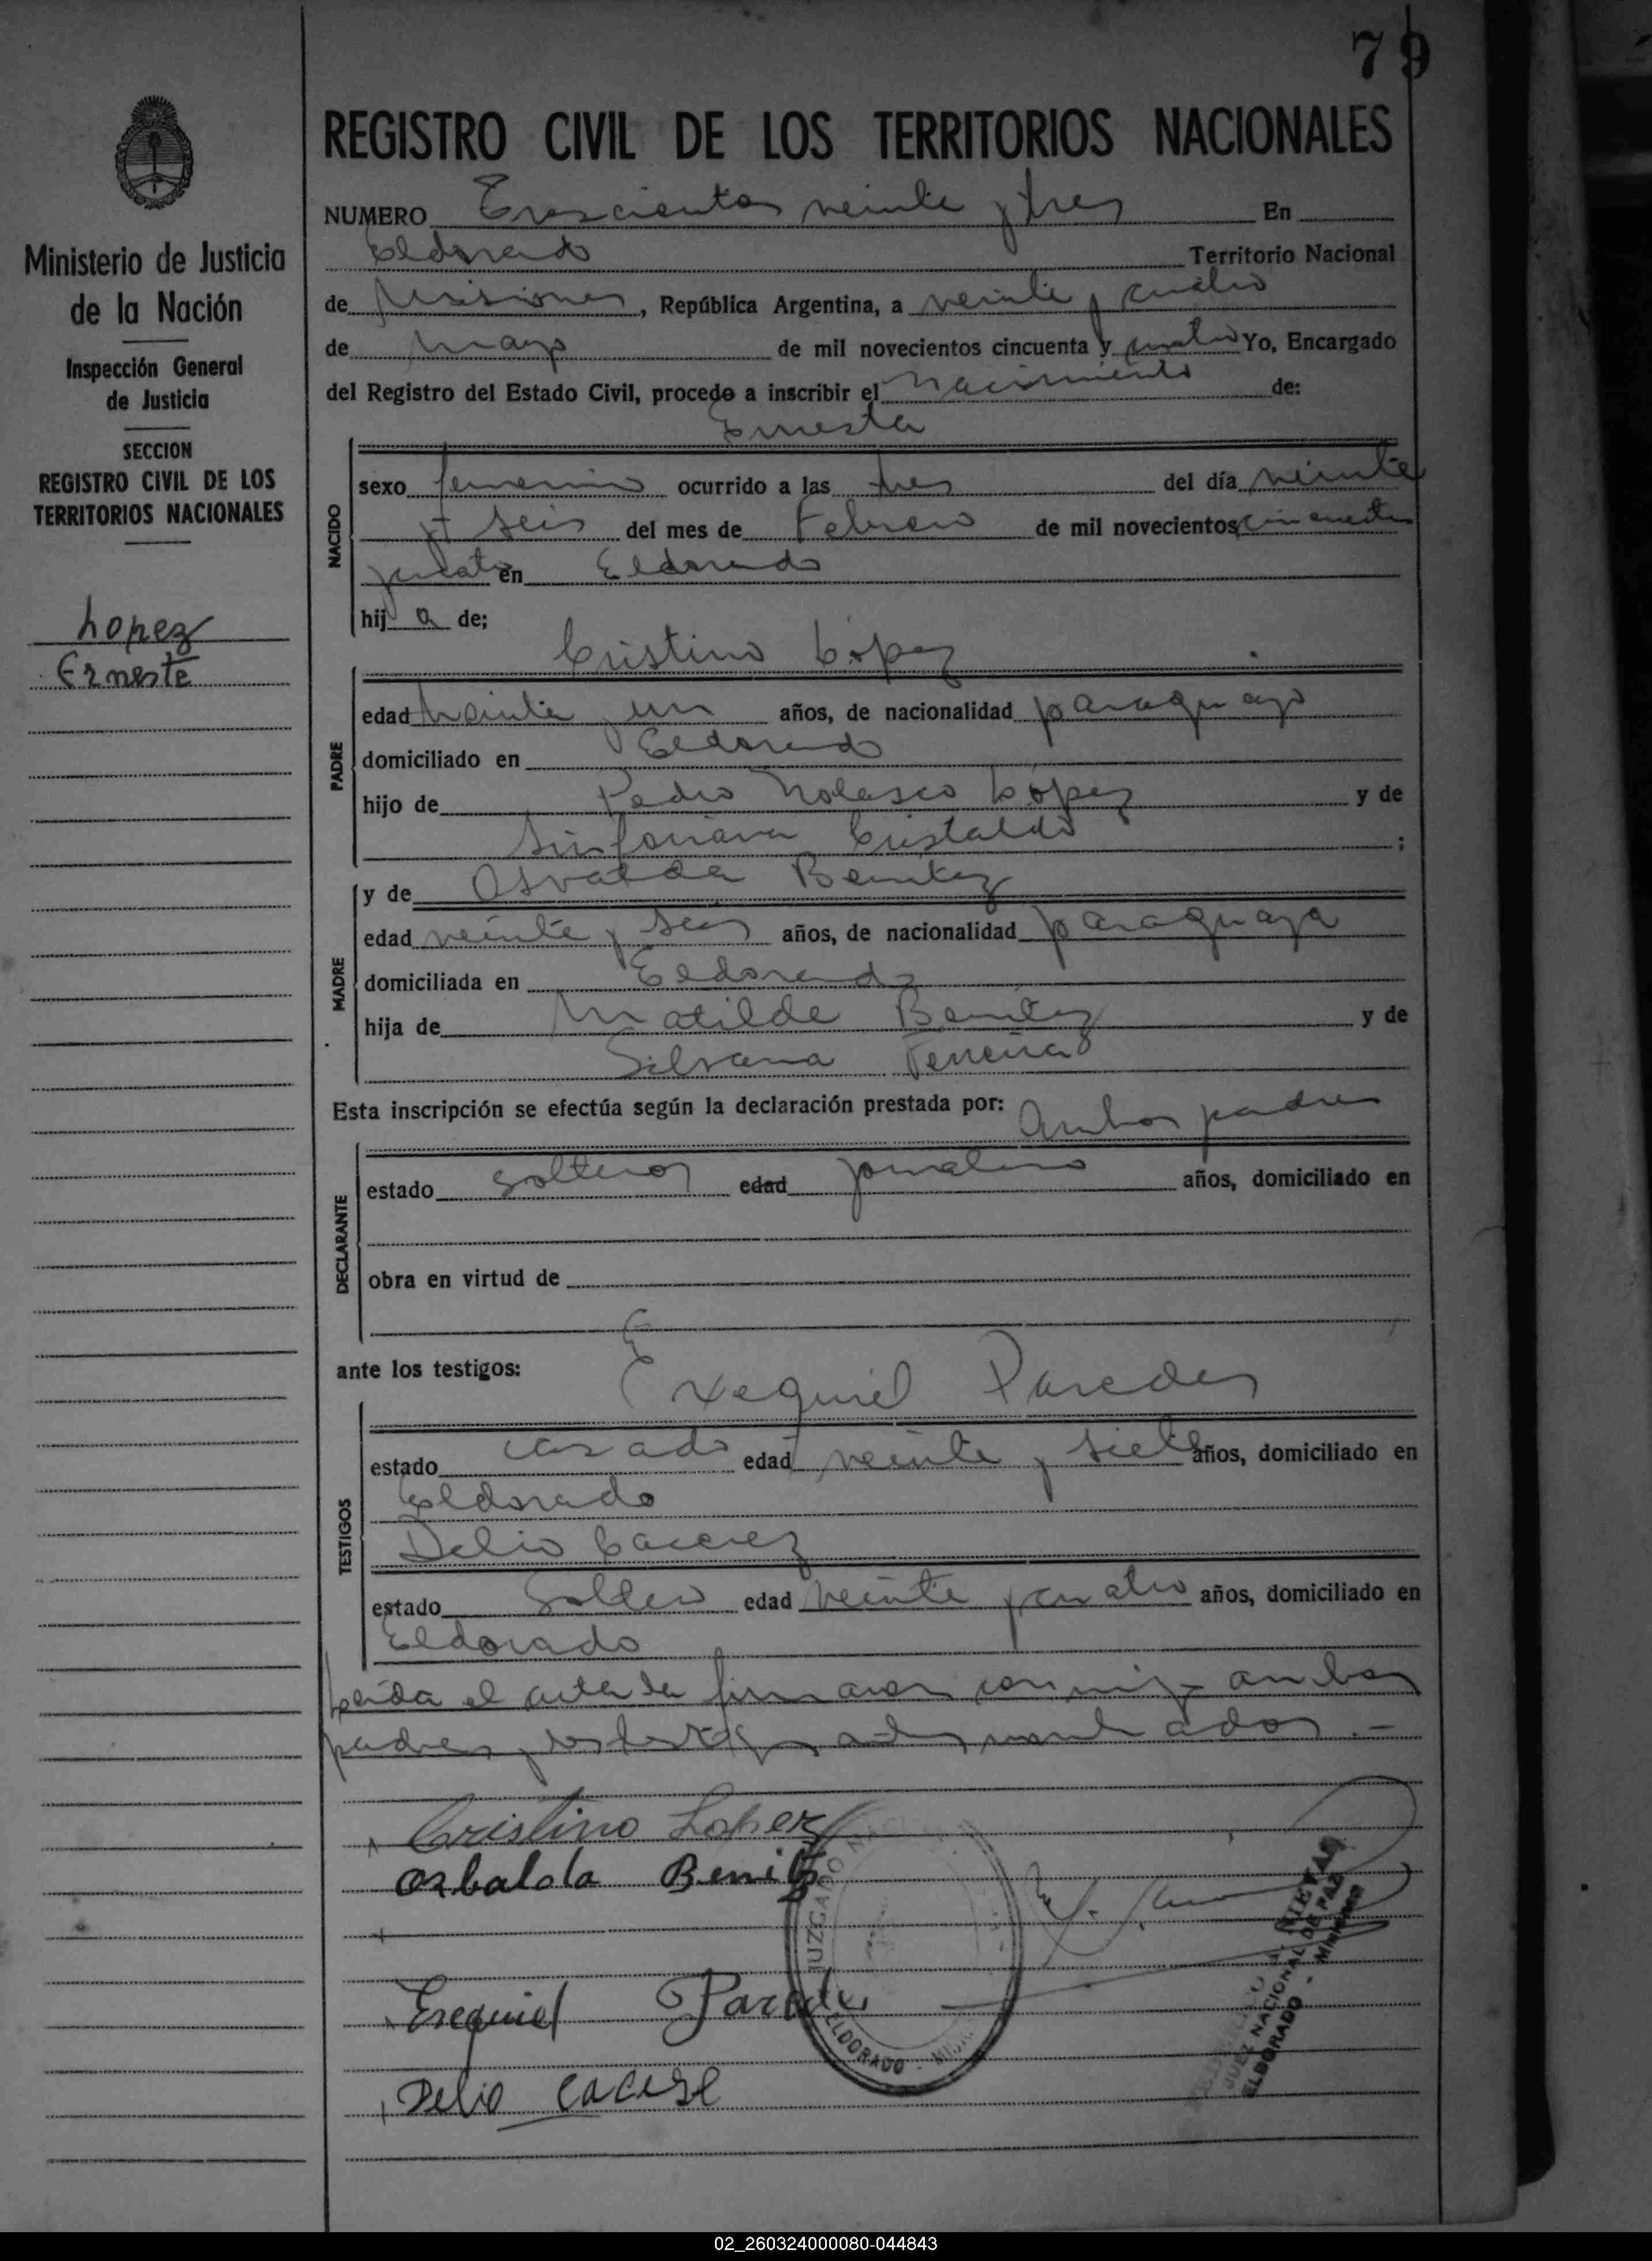 79
REGISTRO CIVIL DE LOS TERRITORIOS NACIONALES
Ministerio de Justicia
de la Nación
Inspección General
de Justicia
SECCION
REGISTRO CIVIL DE LOS
TERRITORIOS NACIONALES
Lopez
Erneste
NUMERO Trescientos veinte y tres En
Eldorado Territorio Nacional
de Misiones, República Argentina, a veinte y cuatro
de mayo de mil novecientos cincuenta y cuatro Yo, Encargado
del Registro del Estado Civil, procedo a inscribir el nacimiento de:
Ernesta
NACIDO
sexo femenino ocurrido a las tres del día veinte
y seis del mes de Febrero de mil novecientos cincuenta
y cuatro en Eldorado
hij a de;
Cristino López
PADRE
edad treinta y un años, de nacionalidad paraguayo
domiciliado en Eldorado
hijo de Pedro Nolasco López y de
Sinforiana Cristaldo ;
MADRE
y de Osvalda Benitez
edad veinte y seis años, de nacionalidad paraguaya
domiciliada en Eldorado
hija de Matilde Benitez y de
Silvana
Esta inscripción se efectúa según la declaración prestada por: Ambos padres
DECLARANTE
estado solteros edad jornalero años, domiciliado en
obra en virtud de
ante los testigos: Exequiel Paredes
TESTIGOS
estado casado edad veinte y siete años, domiciliado en
Eldorado
Delio Cacerez
estado Soltero edad veinte y cuatro años, domiciliado en
Eldorado
Leída el acta la firmaron conmigo ambos
padres y los testigos antes nombrados.-
Cristino Lopez
Osbalda Benitz
Esequiel Paredes
Delio Cacese
JUZGADO
ELDORADO - MISIONES
NIEVAS
JUEZ NACIONAL DE PAZ
ELDORADO - Misiones
02_260324000080-044843